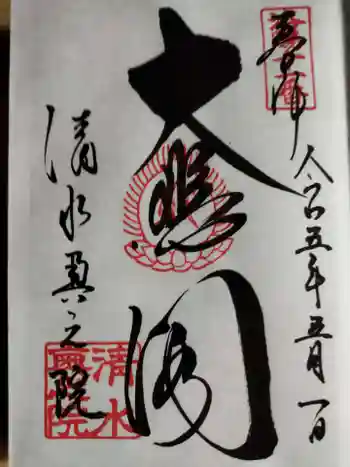 奉拝
令和五年五月一日
大悲閣
清水奥之院
清水奥院